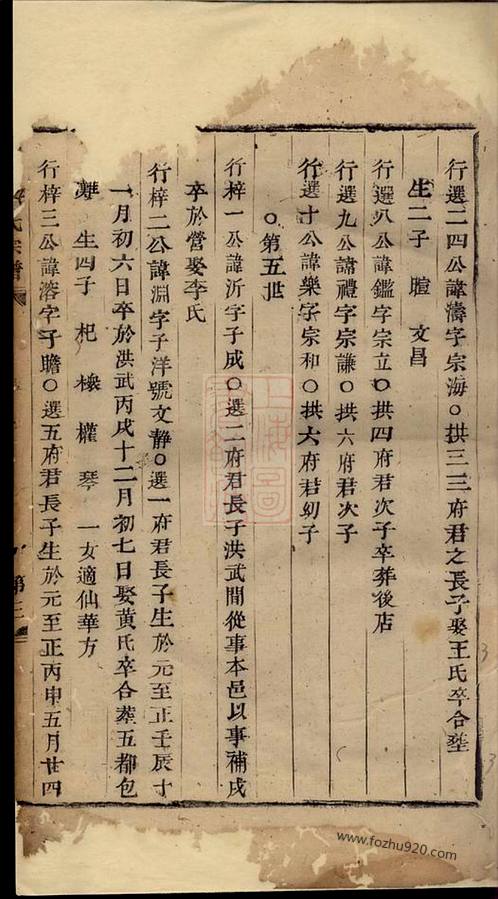 行選二四公諱濤字宗海○拱三三府君之長子娶王氏卒合塟
生二子 暄 文昌
行選八公諱鑑字宗立○拱四府君次子卒葬後店
行選九公諱禮字宗謙○拱六府君次子
行選十公諱樂字宗和○拱六府君幼子
○第五世
行梓一公諱沂字子成○選二府君長子洪武間從事本邑以事補戍
卒於營娶李氏
行梓二公諱淵字子洋號文靜○選一府君長子生於元至正壬辰十
一月初六日卒於洪武丙戌十二月初七日娶黄氏卒合塟五都包
生四子 杞 權 琴 一女適仙華方
行梓三公諱溶字子瞻○選五府君長子生於元至正丙申五月廿四
氏宗譜
第三
www.fozhu920.com